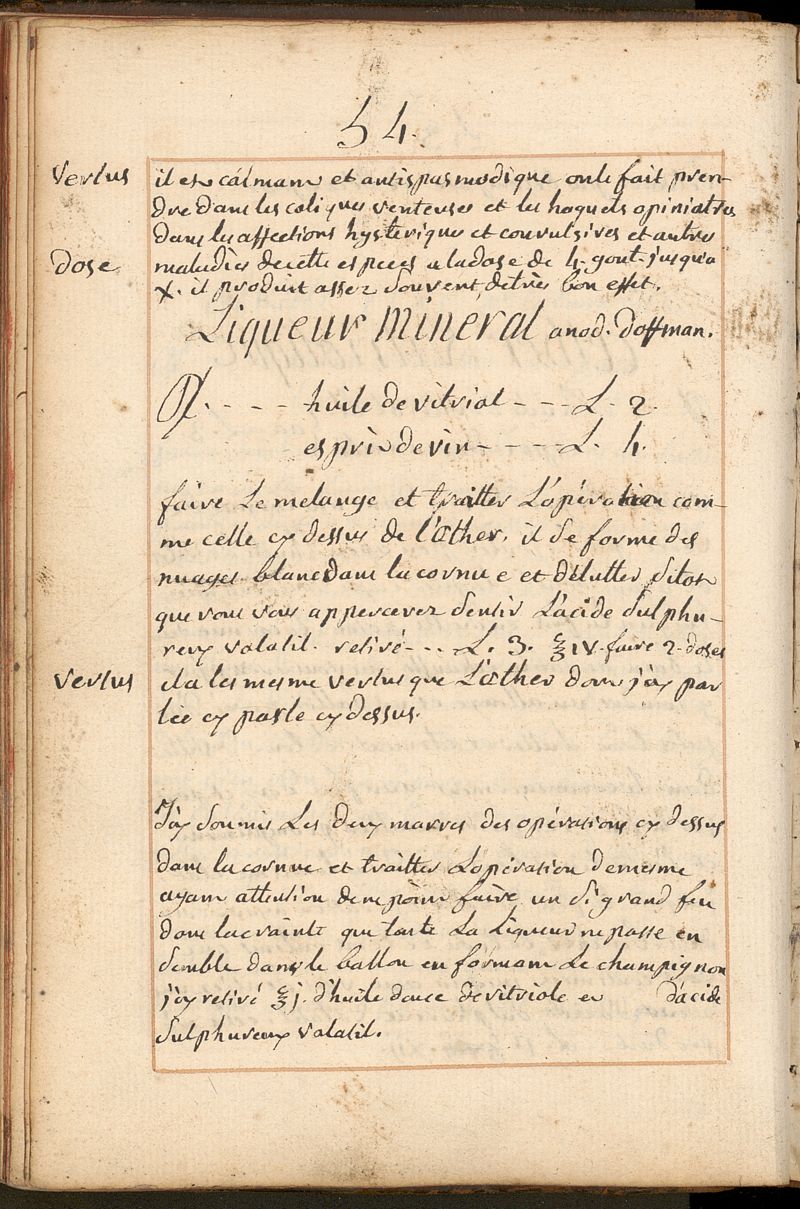 54.
Vertus
il est calmant et antispasmodique on le fait pren-
dre dans les coliques venteuses et les hoquets opiniatres
dans les affections hysteriques et convulsives et autres
Dose
maladies de cette espece a la dose de 4. gout. jusqu'a
X. il produit assez souvent de très bon effet.
Liqueur mineral anod. d'offman.
R/. - - - huile de vitriol - - - L. 2.
esprit de vin - - - - L. 4.
faire Le melange et traitter L'opération com-
me celle cy dessus de l'æther, il se forme des
nuages blanc dans la cornue et délutter sitot
que vous vous appercevez sentir L'acide sulphu-
reux volatil. retiré - - . . L. 3. ℥ IV. faire 2. doses
Vertus
il a les mesme vertus que L'æther dont j'ay par
lée cy
cy dessus.
J'ay soumis Les deux marres des opérations cy dessus
dans la cornue et traitter L'opération de mesme
ayant attention de ne point faire un si grand feu
dont la crainte que toute La Liqueur ne passe en
semble dans le ballon en formant Le champignon
j'ay retiré ℥ j. d'huile douce de vitriole et d'acide
sulphureux volatil.